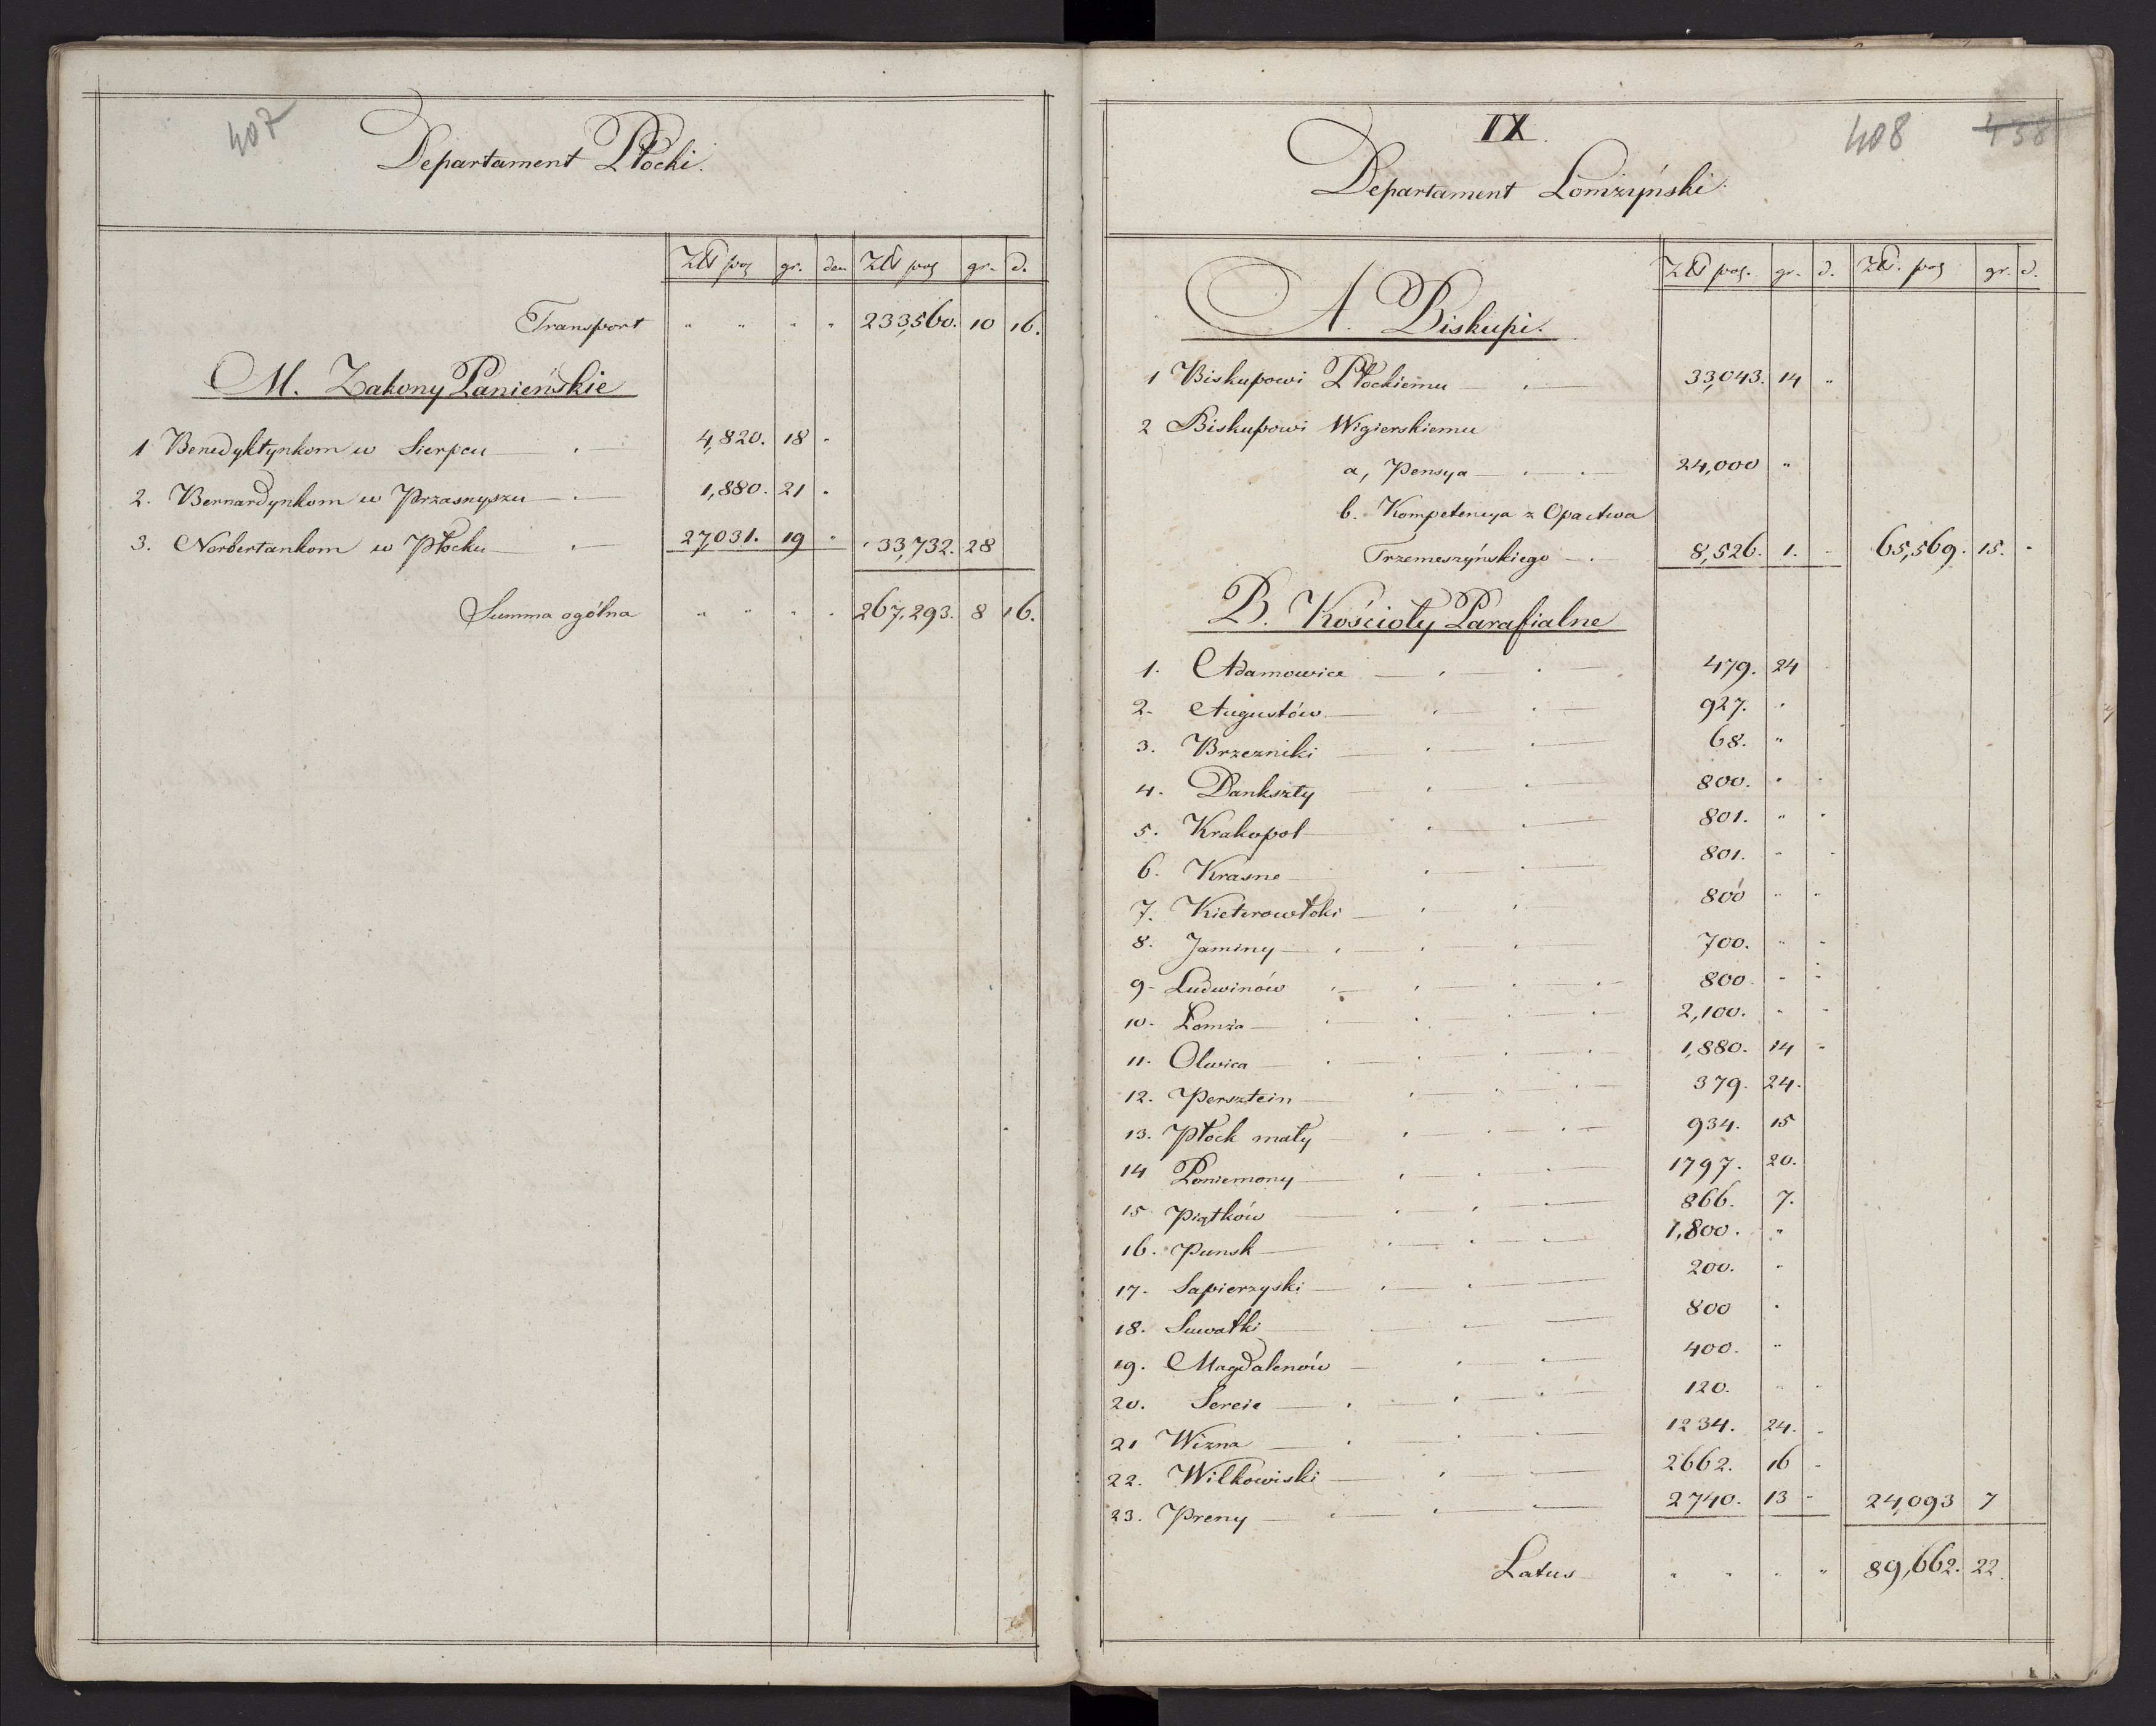 407
Departament Płocki.
Złł pol gr. den Złł pol gr. d.
Transport " " " " 233,560. 10 16.
M. Zakony Panieńskie
1 Benedyktynkom w Sierpcu 4,820. 18 "
2. Bernardynkom w Przasnyszu 1,880. 21 "
3. Norbertankom w Płocku 27,031. 19 " 33,732. 28
Summa ogólna " " " " 267,293. 8 16.
IX.
408 438
Departament Łomżyński.
Złł pol. gr. d. Złł. pol gr. d.
A. Biskupi.
1 Biskupowi Płockiemu 33,043. 14 "
2 Biskupowi Wigierskiemu
a, Pensya 24,000 "
b. Kompetencya z Opactwa
Trzemeszyńskiego 8,526. 1. - 65,569. 15. -
B. Kościoły Parafialne
1. Adamowice 479. 24
2. Augustów 927. "
3. Brzezniki 68. "
4. Dankszty 800. " -
5. Krakopol 801. " "
6. Krasne 801. - -
7. Kieterowłoki 800 " -
8. Jaminy 700. " -
9. Ludwinów 800. - -
10. Łomża 2,100. - -
11. Olwica 1,880. 14 -
12. Persztein 379. 24.
13. Płock mały 934. 15
14 Poniemony 1797. 20.
15 Piątków 866. 7.
16. Punsk 1,800. "
17. Sapierzyski 200. "
18. Suwałki 800 "
19. Magdalenów 400. "
20. Sereie 120. " "
21 Wizna 1234. 24. -
22. Wilkowiski 2662. 16 -
23. Preny 2740. 13 - 24,093 7
Latus " " " " 89,662. 22.